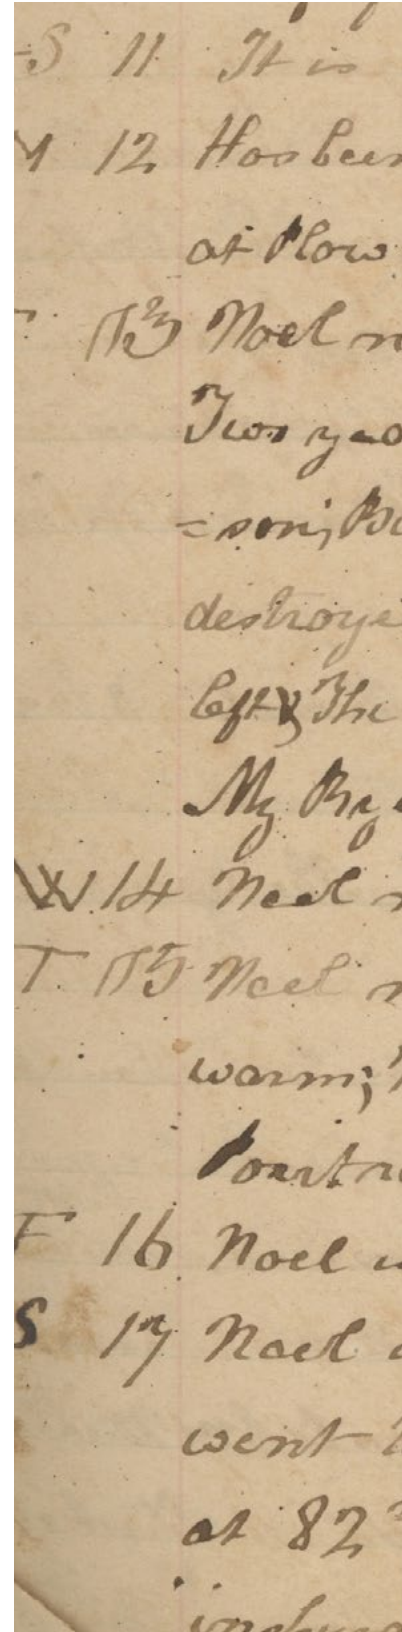 S 11 It is
M 12 Has been
at Plow
T 13 Noel
Two yea
=son; Bu
destroye
left & The
My Bug
W. 14 Noel
T. 15 Noel
warm;
F 16 Noel
S 17 Noel
went
at 82